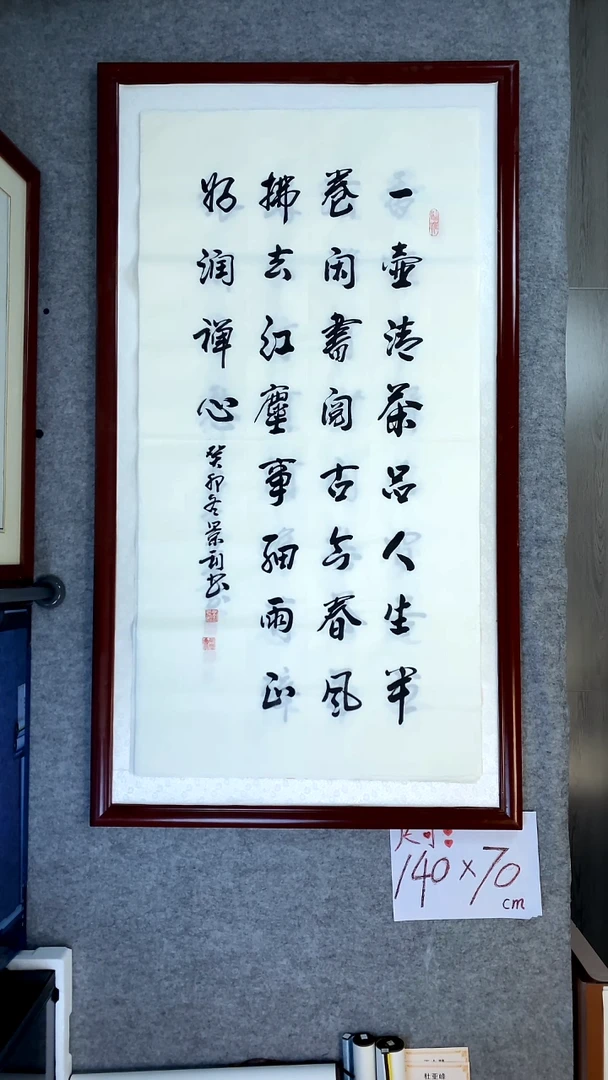 一壶清茶品人生半
卷闲書阅古今春风
拂去红塵事细雨正
好润禅心
癸卯冬景利书
尺寸:
140×70
cm
杜亚峰